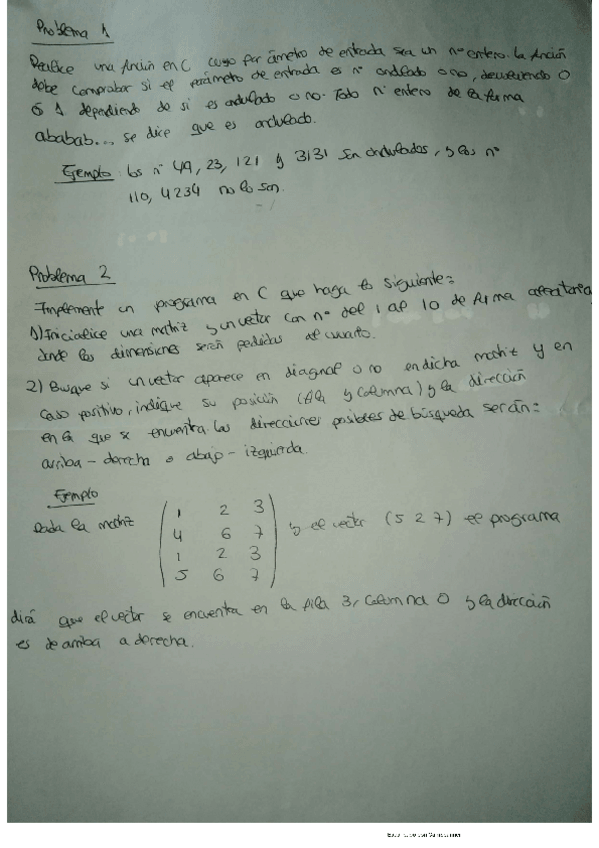 Problema 1
Realice una función en C cuyo parámetro de entrada sea un nº entero. La función
debe comprobar si el parámetro de entrada es nº ondulado o no, devolviendo 0
ó 1 dependiendo de si es ondulado o no. Todo nº entero de la forma
ababab... se dice que es ondulado.
Ejemplo: los nº 49, 23, 121 y 3131 son ondulados, y los nº
110, 4234 no lo son.
Problema 2
Implement un programa en C que haga lo siguiente:
1) Inicialice una matriz y un vector con nº del 1 al 10 de forma aleatoria,
donde las dimensiones serán pedidas al usuario.
2) Busque si un vector aparece en diagnal o no en dicha matriz y en
caso positivo, indique su posición (fila y columna) y la dirección
en la que se encuentra. Las direcciones posibles de búsqueda serán:
arriba - derecha o abajo - izquierda.
Ejemplo
Dada la matriz
1 2 3
4 6 7
1 2 3
5 6 7
y el vector (5 2 7) el programa
dirá que el vector se encuentra en la fila 3, columna 0 y la dirección
es de arriba a derecha.